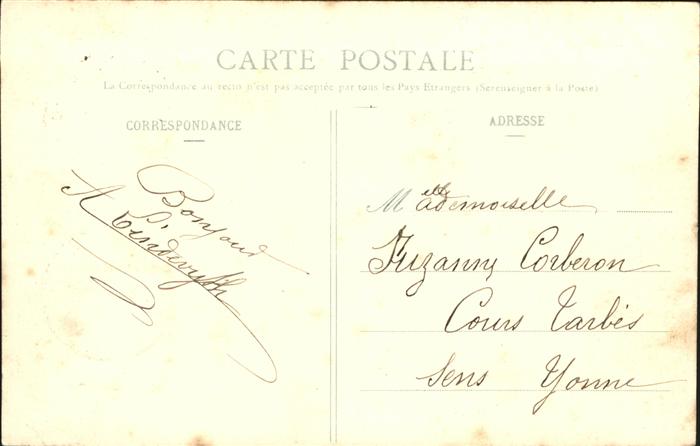 CARTE POSTALE
La Correspondance au recto n'est pas acceptée par tous les Pays Etrangers (Se renseigner à la Poste)
CORRESPONDANCE
Bonjour
ADRESSE
Mademoiselle
Suzanne Corberon
Cours Tarbés
Sens Yonne